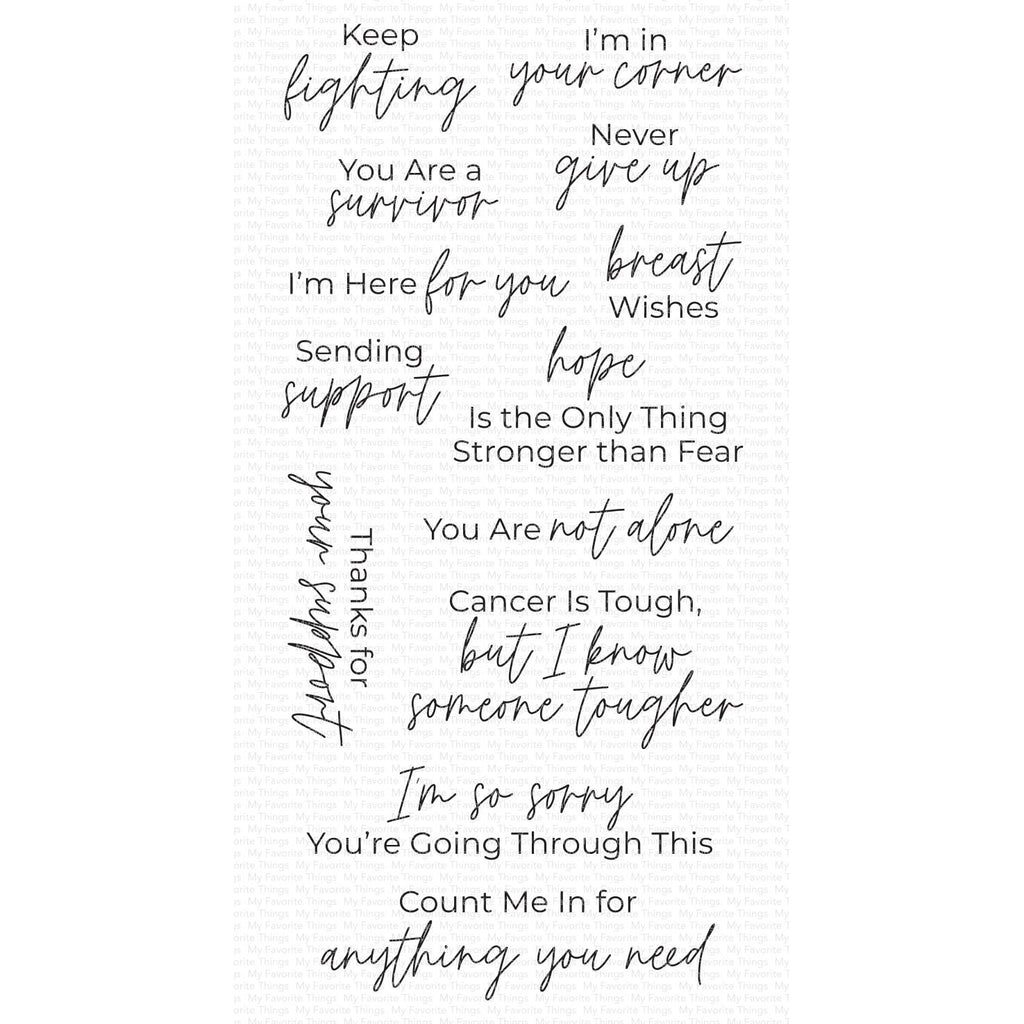 Keep
fighting
I'm in
your corner
Never
give up
You Are a
survivor
I'm Here for you
breast
Wishes
Sending
support
hope
Is the Only Thing
Stronger than Fear
Thanks for
your support
You Are not alone
Cancer Is Tough,
but I know
someone tougher
I'm so sorry
You're Going Through This
Count Me In for
anything you need
My Favorite Things